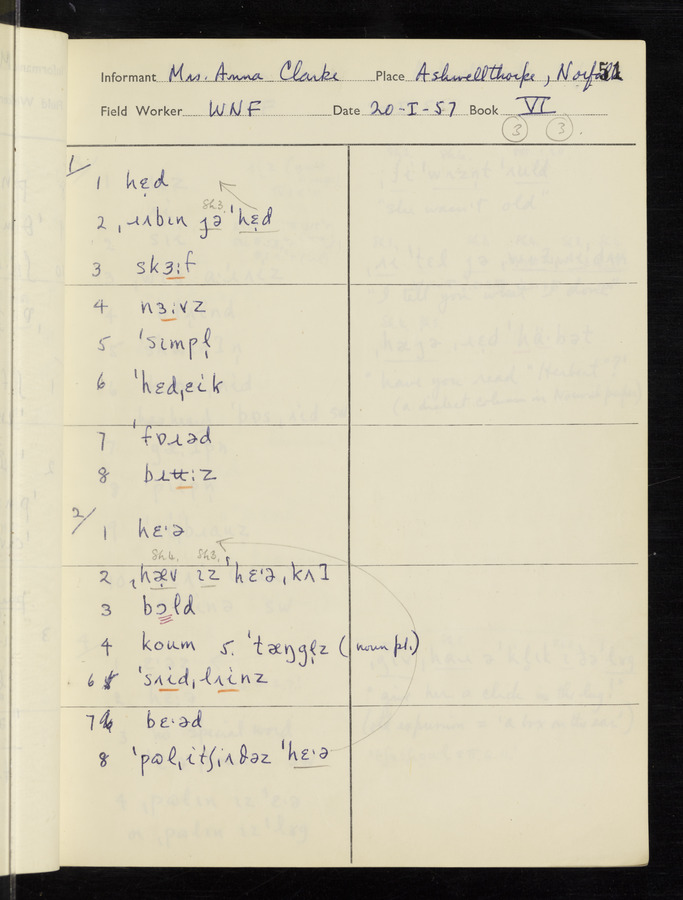 51
Informant Mrs. Anna Clarke Place Ashwellthorpe, Norfolk
Field Worker WNF Date 20-I-57 Book VI
3 3.
1/
1 hɛ̣d
Sh3.
2 ˌɹɪbɪn jə ˈhɛ̣d
3 skɜːf
4 nɜːvz
5 ˈsɪmpl̩
6 ˈhɛdˌeik
7 ˈfɒɹəd
8
2/
1 hɛˑə
Sh4. Sh3.
2 ˌhæ̣v ɪz ˈhɛˑəˌkʌt
3 bɔ̣ld
4 koum 5. ˈtæŋgl̩z (noun pl.)
6 ˈsʌidˌlʌinz
7 beˑəd
8 ˈpælˌitʃˌʌðəz ˈhɛˑə